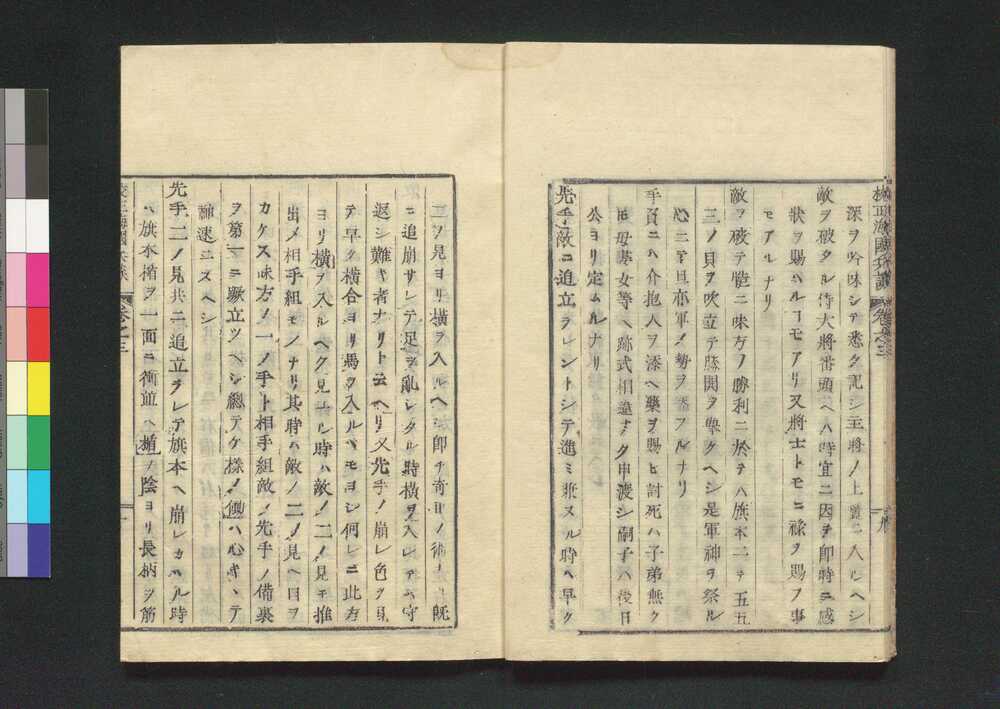 校正海國兵談 卷之三
深ヲ吟味シテ悉ク記シ主將ノ上覽ニ入ルヘシ
敵ヲ破タル侍大將番頭ヘハ時宜ニ因テ即時ニ感
狀ヲ賜ハルコモアリ又將士トモニ祿ヲ賜フ事
モアルナリ
敵ヲ破テ慥ニ味方ノ勝利ニ於テハ旗本ニテ五五
三ノ貝ヲ吹立テ勝閧ヲ擧クヘシ是軍神ヲ祭ル
心ニテ且亦軍ノ勢ヲ添フルナリ
手負ニハ介抱人ヲ添ヘ藥ヲ賜ヒ討死ハ子弟無ク
旧母妻女等ヘ跡式相違ナク申渡シ嗣子ハ後日
公ヨリ定ムルナリ
先手敵ニ追立ラレントシテ進ミ兼ヌル時ハ早ク
二ノ見ヨリ橫ヲ入ルヘシ即チ奇正ノ術ノ既
ニ追崩サレテ足ヲ亂シタル時橫ヲ入レテハ守
返シ難キ者ナリト云ヘリ又先手ノ崩レ色ヲ見
テ早ク橫合ヨリ馬ヲ入ルルモヨシ何レニ此方
ヨリ橫ヲ入ルヘク見ユル時ハ敵ノ二ノ見モ推
出メ相手組モノナリ其時ハ敵ノ二ノ見ヘ目ヲ
カケス味方ノ一ノ手ト相手組敵ノ先手ノ備裏
ヲ第一ニ蹶立ツヘシ總テケ樣ノ働ハ心キヽテ
神速ニスヘシ
先手二ノ見共ニ追立ラレテ旗本ヘ崩レカヽル時
ハ旗本楯ヲ一面ニ衝並ヘ楯ノ陰ヨリ長柄ヲ筋
校正海國兵談 卷之三